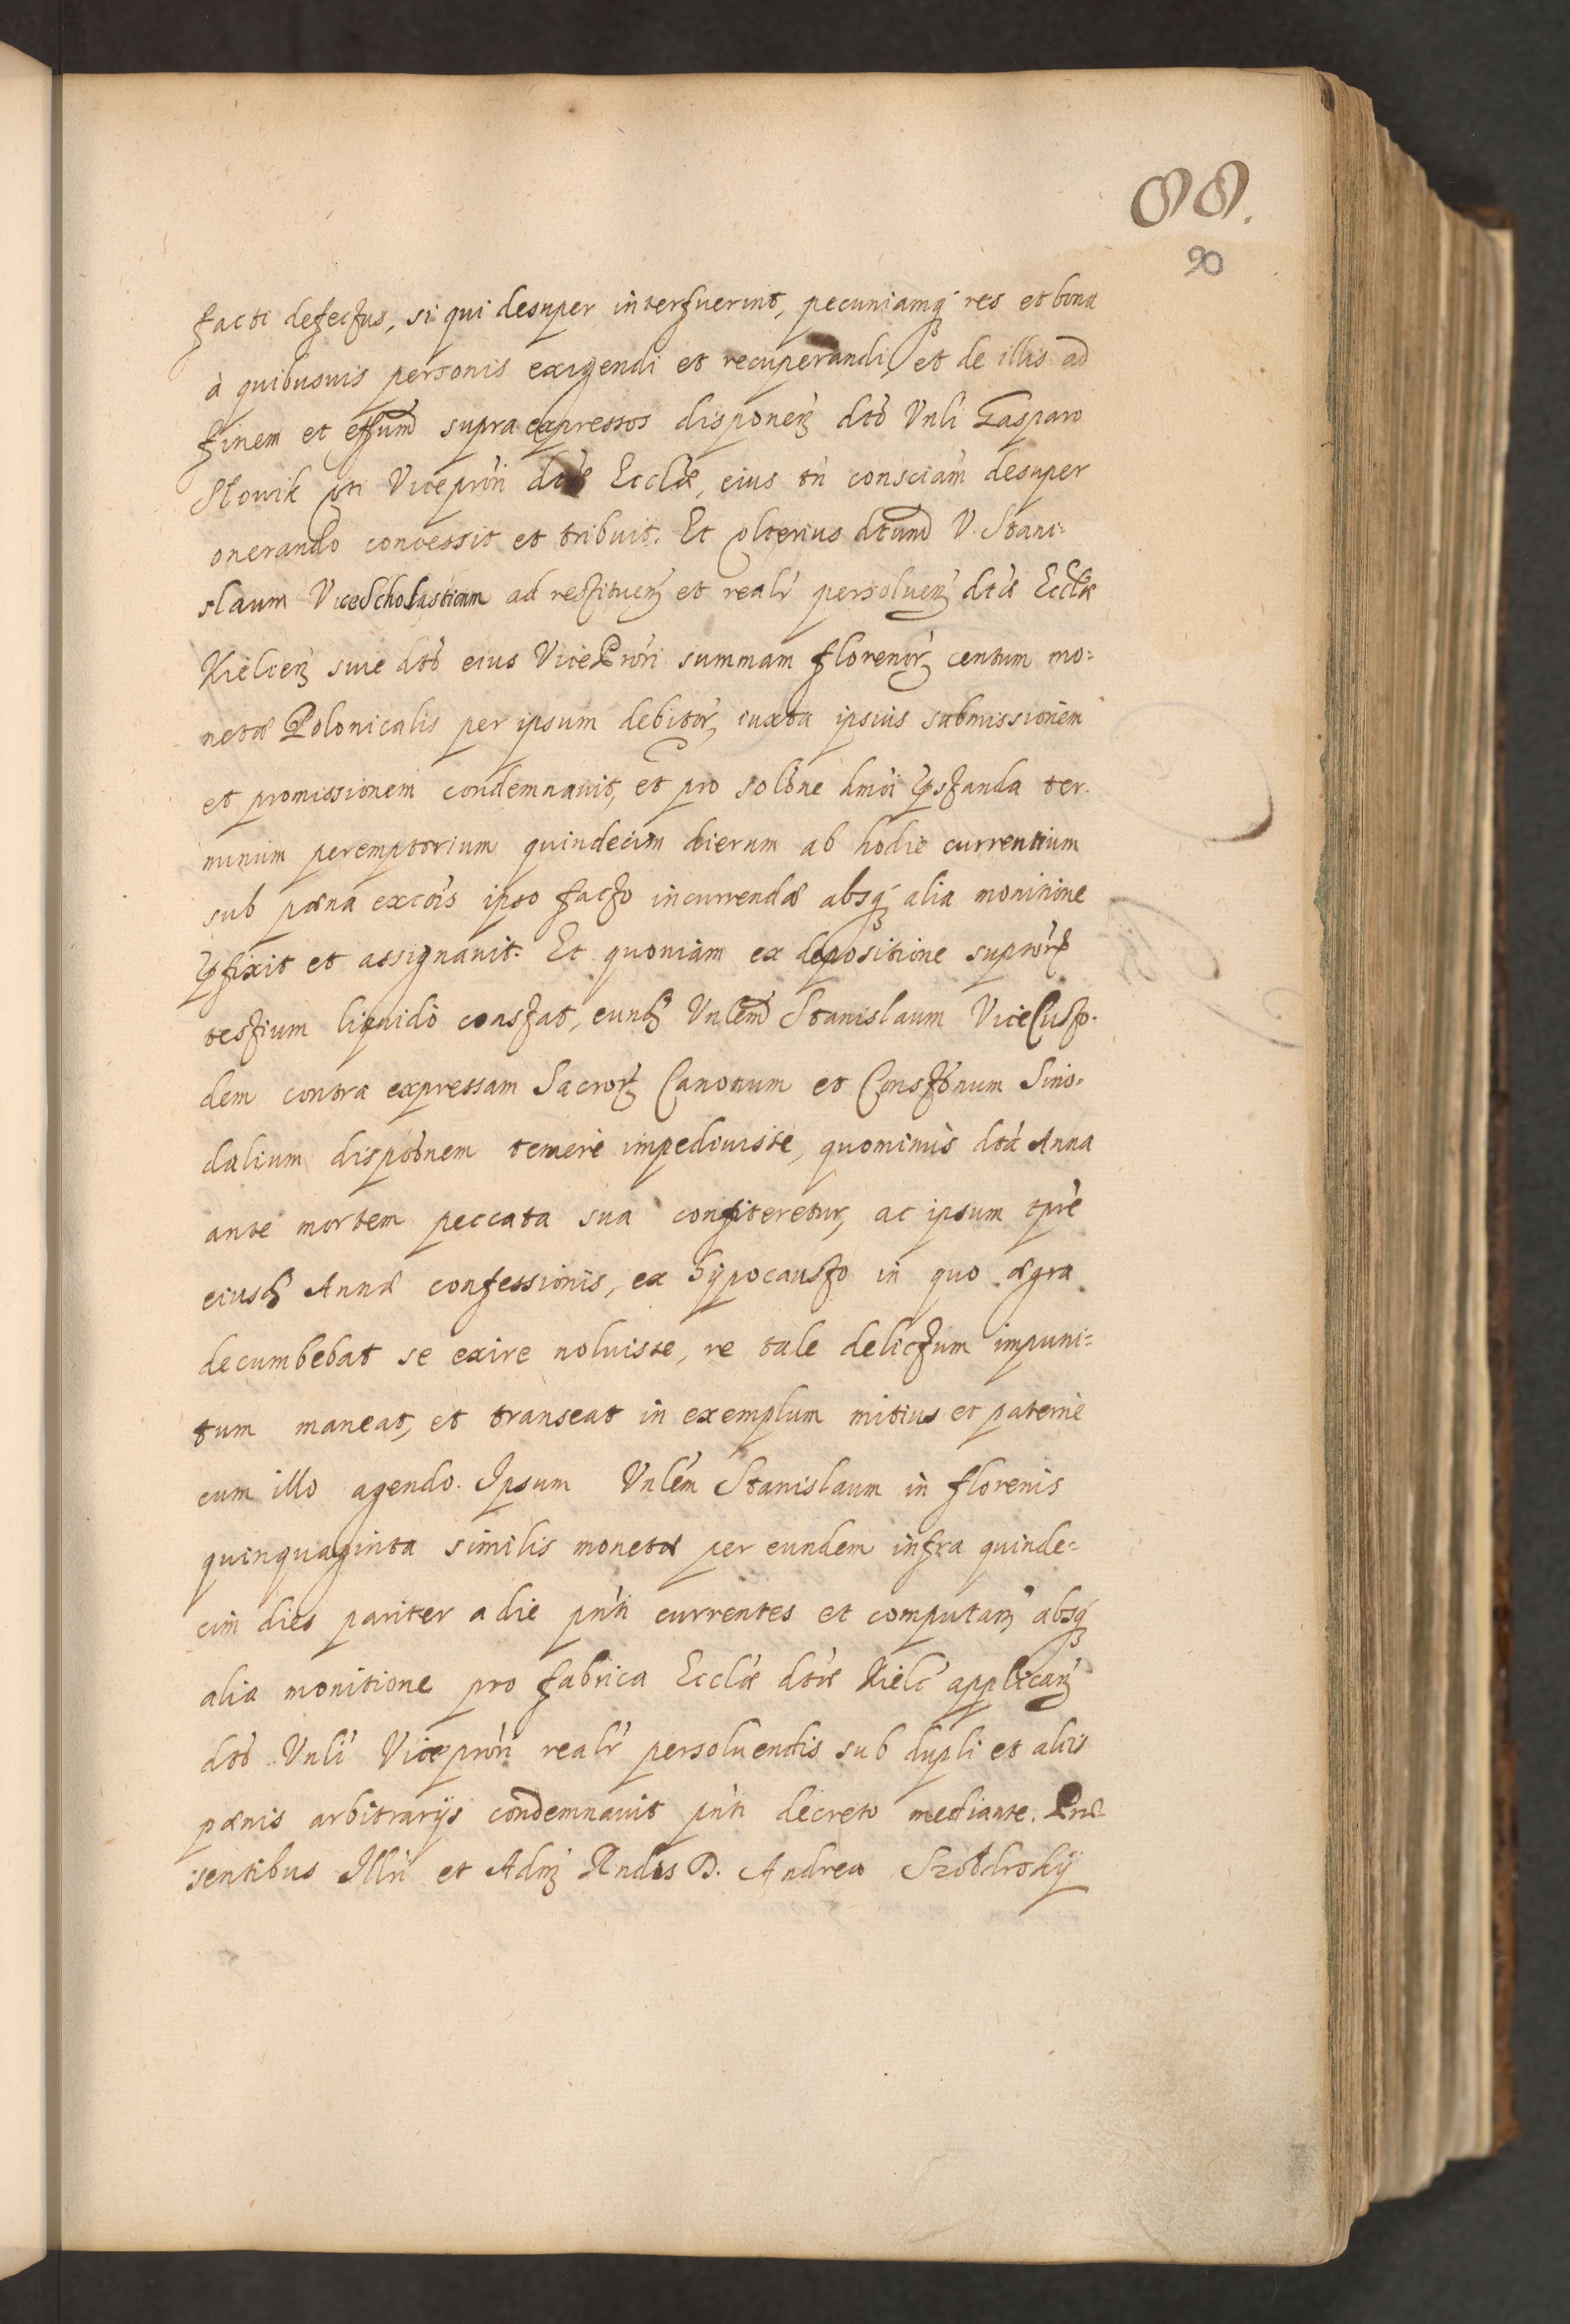 88.
90
facti defectus, si qui desuper interfuerint, pecuniamq́ȝ res et bona
à quibusuis personis exigendi et recuperandi, et de illis ad
finem et effum̃ supra expressos disponeñ dt̃o Vnli Gasparo
Slowik pti Viceprõri dt̃æ Ecclæ, eius tñ consciam̃ desuper
onerando concessit et tribuit. Et vlterius dtum̃ V. Stani=
slaum ViceScholasticum ad restitueñ et realr̃ persolueñ dt̃æ Ecclæ
Kielceñ siue dt̃o eius VicePrõri summam florenor̃ centum mo=
netæ Polonicalis per ipsum debitor̃, iuxta ipsius submissionem
et promissionem condemnauit, et pro solõne hmõi p̃standa ter-
minum peremptorium quindecim dierum ab hodie currentium
sub pæna excõis ipso facto incurrendæ absq́ȝ alia monitione
p̃fixit et assignauit. Et quoniam ex depositione suprõr̃
testium liquidò constat, eundȝ Vnlem̃ Stanislaum ViceCusto-
dem contra expressam Sacror̃ Canonum et Constõnum Sino-
dalium dispõnem temerè impediuisse, quominùs dt̃a Anna
ante mortem peccata sua confiteretur, ac ipsum tp̃re
eiusdȝ Annæ confessionis, ex hypocausto in quo ægra
decumbebat se exire noluisse, ne tale delictum impuni=
tum maneat, et transeat in exemplum mitius et paternè
cum illo agendo. Ipsum Vnlem̃ Stanislaum in florenis
quinquaginta similis monetæ per eundem infra quinde=
cim dies pariter a die pñti currentes et computañ absq́ȝ
alia monitione pro fabrica Ecclæ dt̃æ Kielc̃ applicañ
dt̃o Vnli Viceprõri realr̃ persoluendis sub dupli et alijs
pænis arbitrarijs condemnauit pñti decreto mediante. Præ
sentibus Illri et Admȝ Rndis D. Andrea Szołdrskÿ